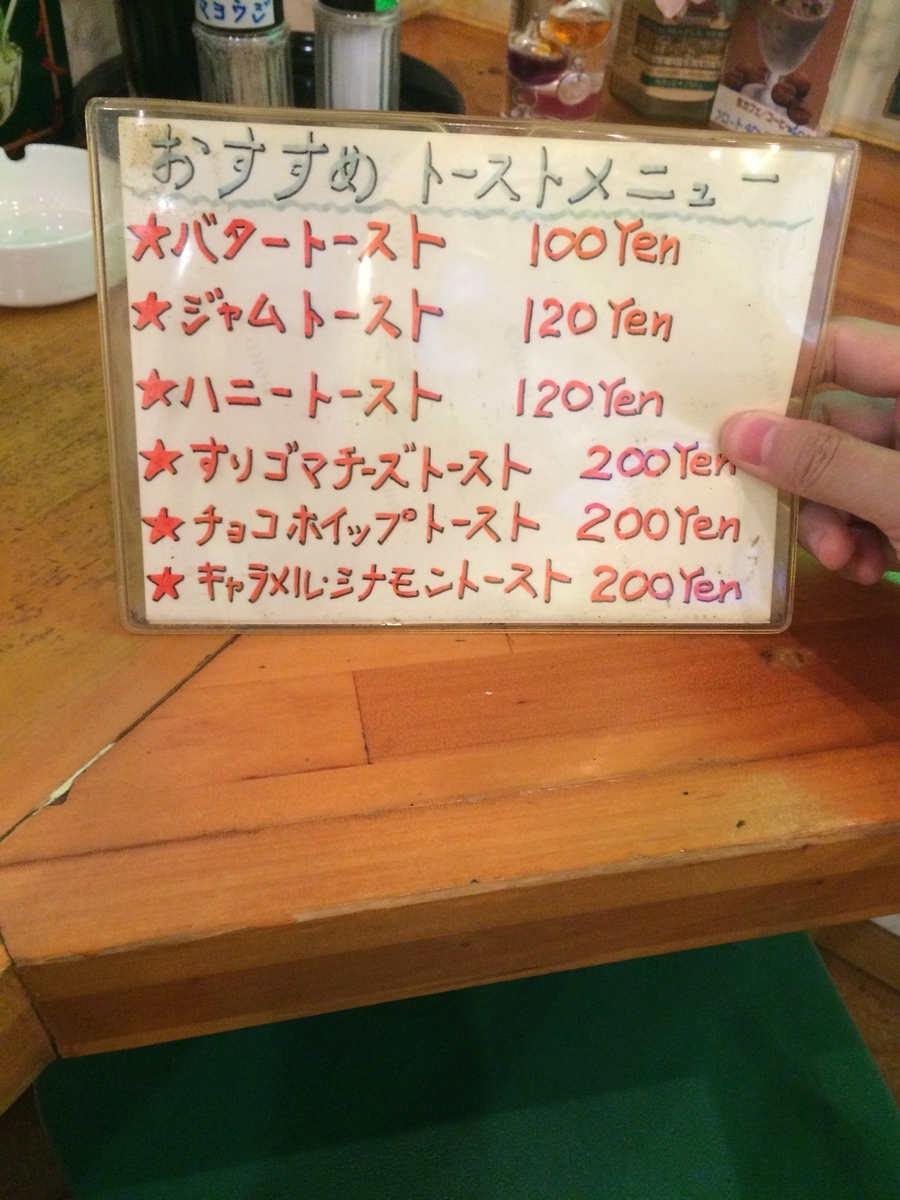 マヨウジ
おすすめ トーストメニュー
★バタートースト 100Yen
★ジャムトースト 120Yen
★ハニートースト 120Yen
★すりゴマチーズトースト 200Yen
★チョコホイップトースト 200Yen
★キャラメル・シナモントースト 200Yen